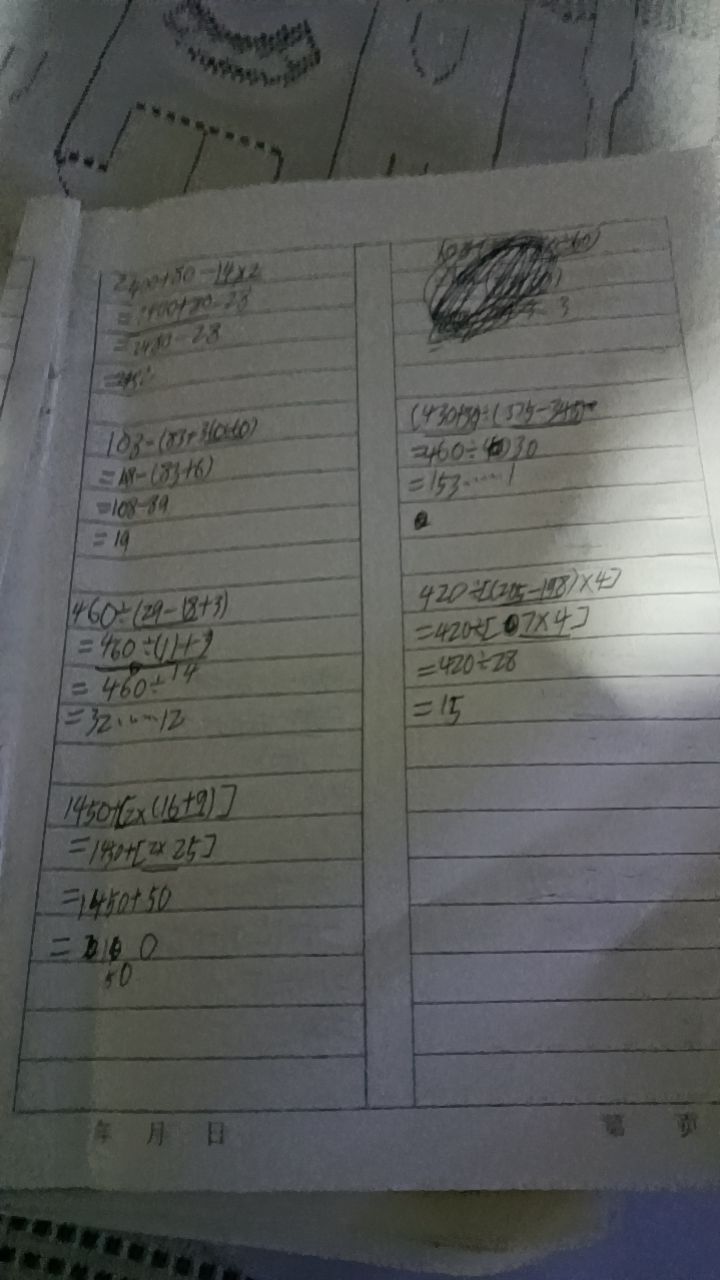 2400+80-14×2
=2400+80-28
=2480-28
103-(83+360÷60)
=108-(83+6)
=108-89
=19
460÷(29-18+3)
=460÷(11+3)
=460÷14
=32……12
1450+[2×(16+9)]
=1450+[2×25]
=1450+50
50
(430+30)÷(375-345)
=460÷30
=153……1
420÷[(205-198)×4]
=420÷[7×4]
=420÷28
=15
年 月 日
第 页